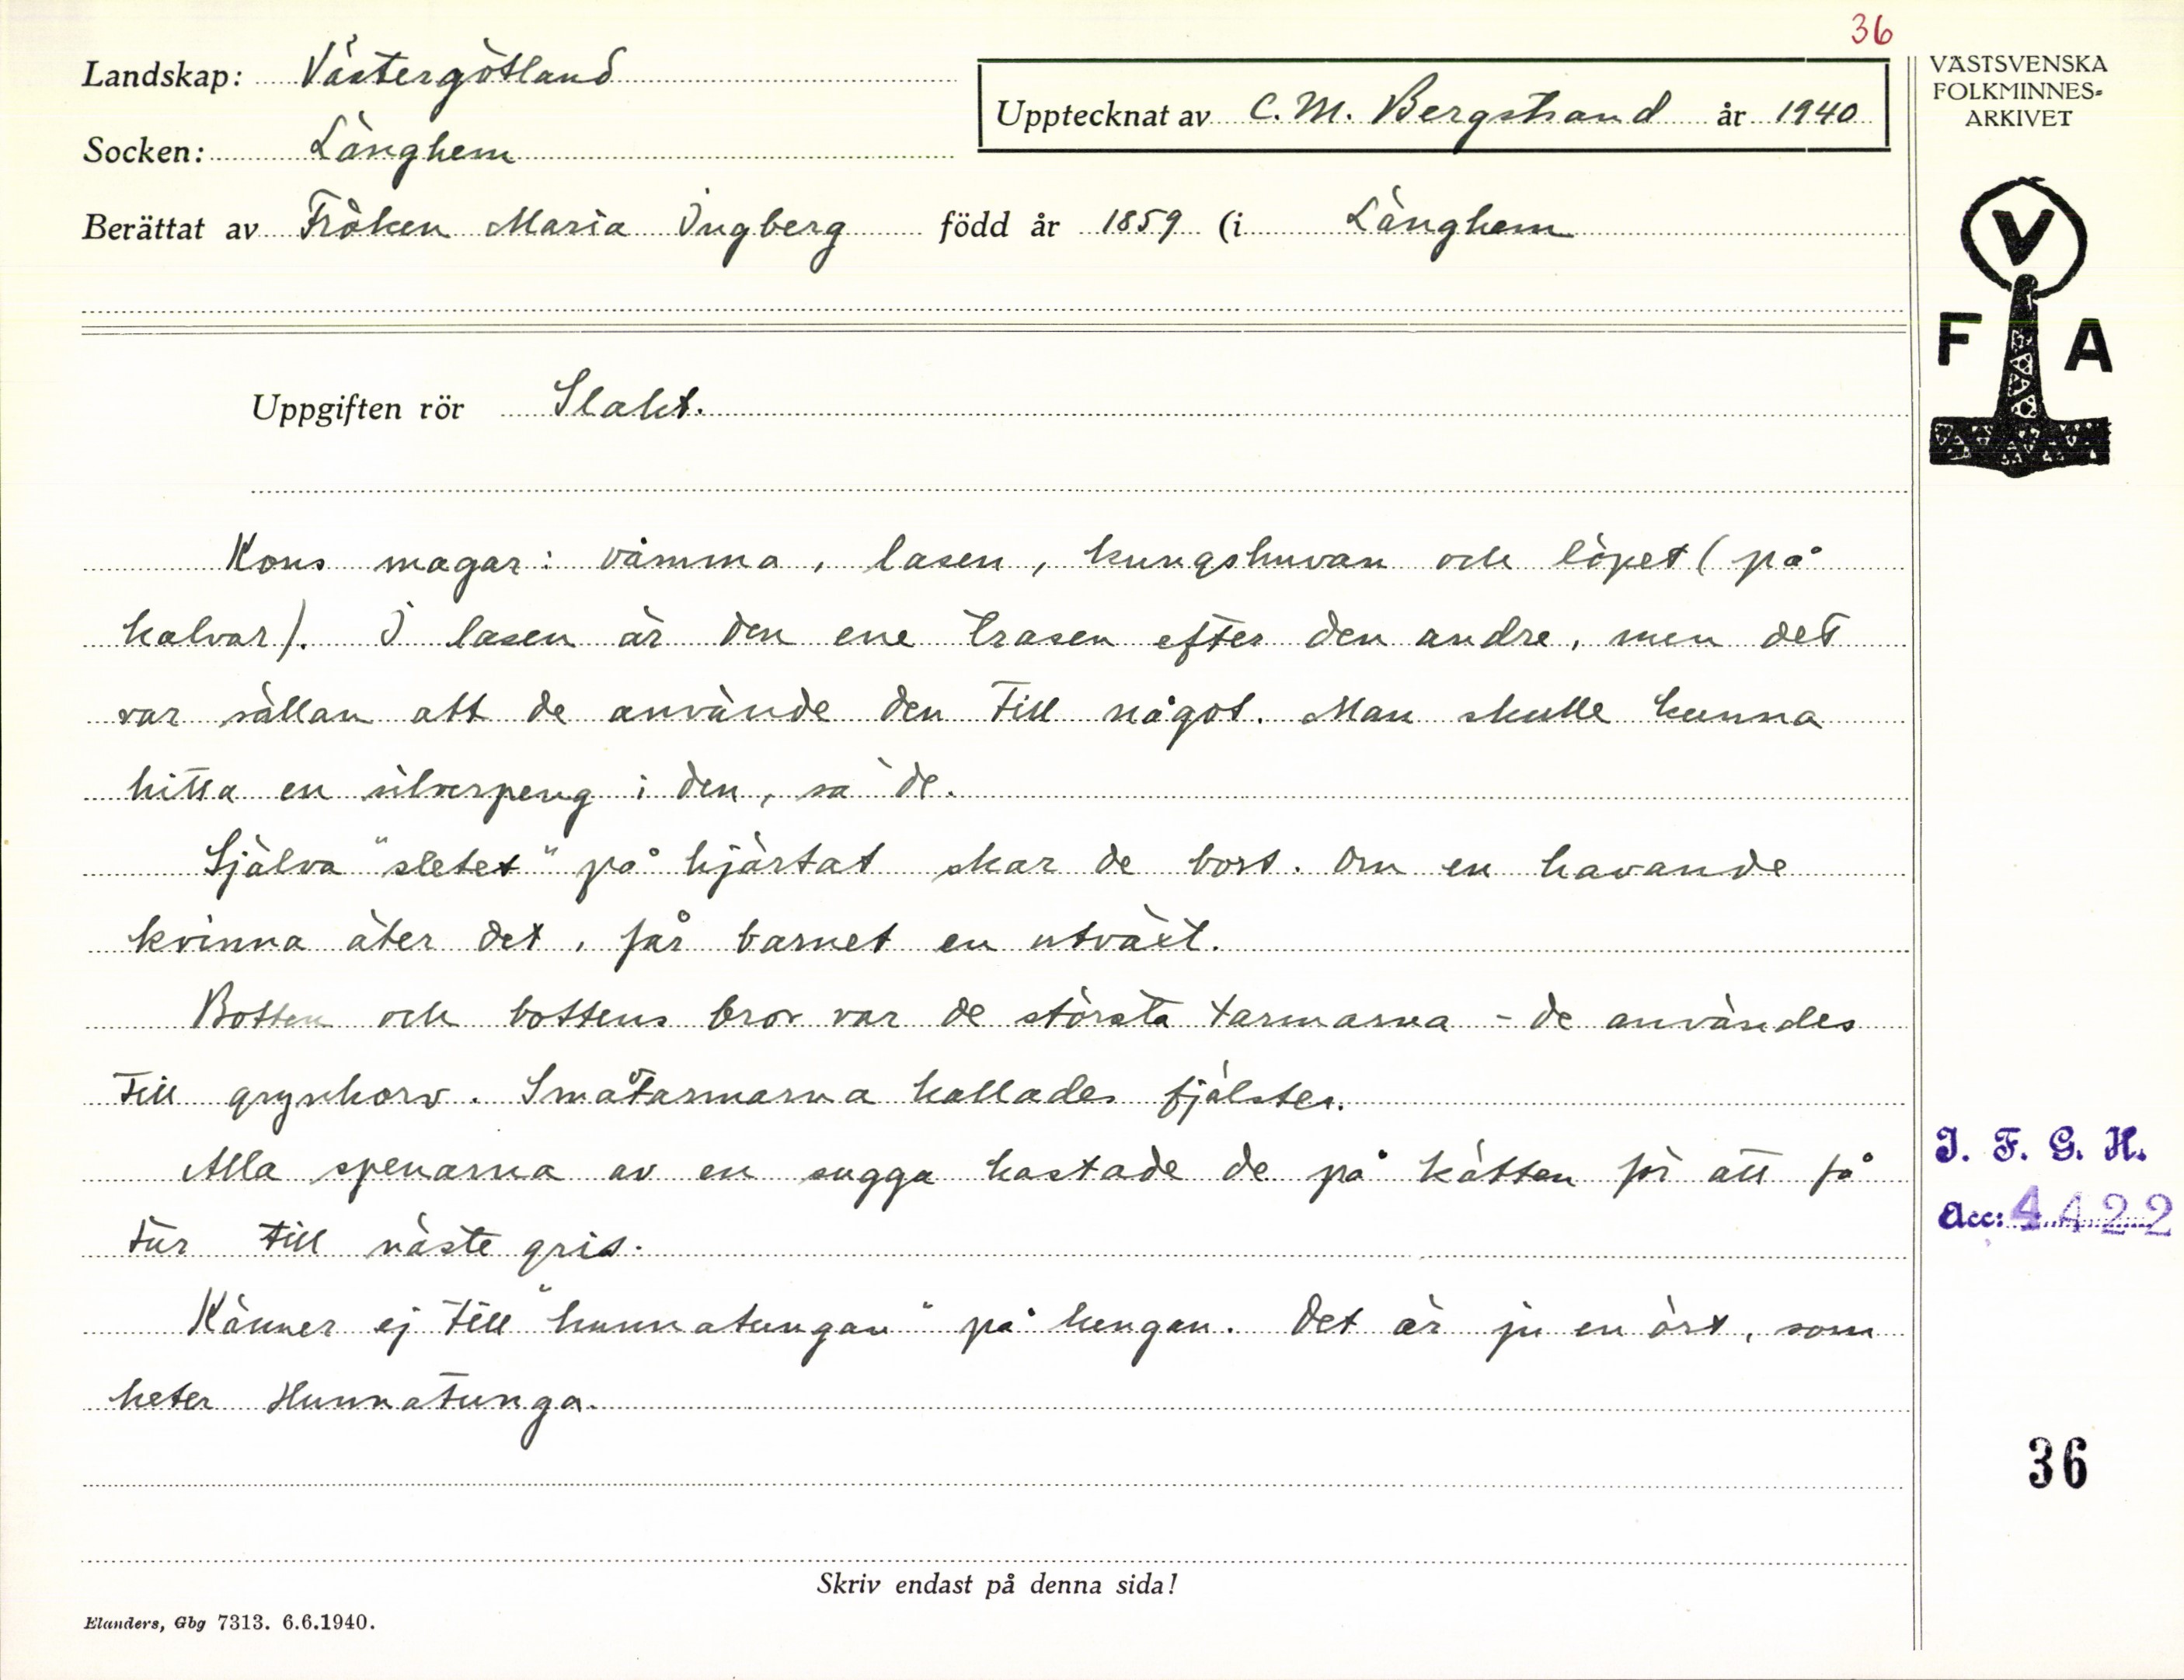 36
Landskap: Västergötland
Upptecknat av C. M. Bergstrand år 1940
Socken: Länghem
Berättat av Fröken Maria Ingberg född år 1859 (i Länghem
VÄSTSVENSKA
FOLKMINNES-
ARKIVET
V
F A
Uppgiften rör Slakt.
Kons magar: våmma, lasen, kungshuvan och löpet (på
kalvar). I lasen är den ene trasen efter den andre, men det
var sällan att de använde den till något. Man skulle kunna
hitta en silverpeng i den, sa de.
Själva "sletet" på hjärtat skar de bort. Om en havande
kvinna äter det, får barnet en utväxt.
Botten och bottens bror var de största tarmarna - de användes
till grynkorv. Småtarmarna kallades fjälster.
Alla spenarna av en sugga kastade de på kätten för att få
tur till näste gris.
Känner ej till "hunnatungan" på lungan. Det är ju en ört, som
heter Hunnatunga.
I. F. G. H.
Acc: 4422
36
Skriv endast på denna sida!
Elanders, Gbg 7313. 6.6.1940.